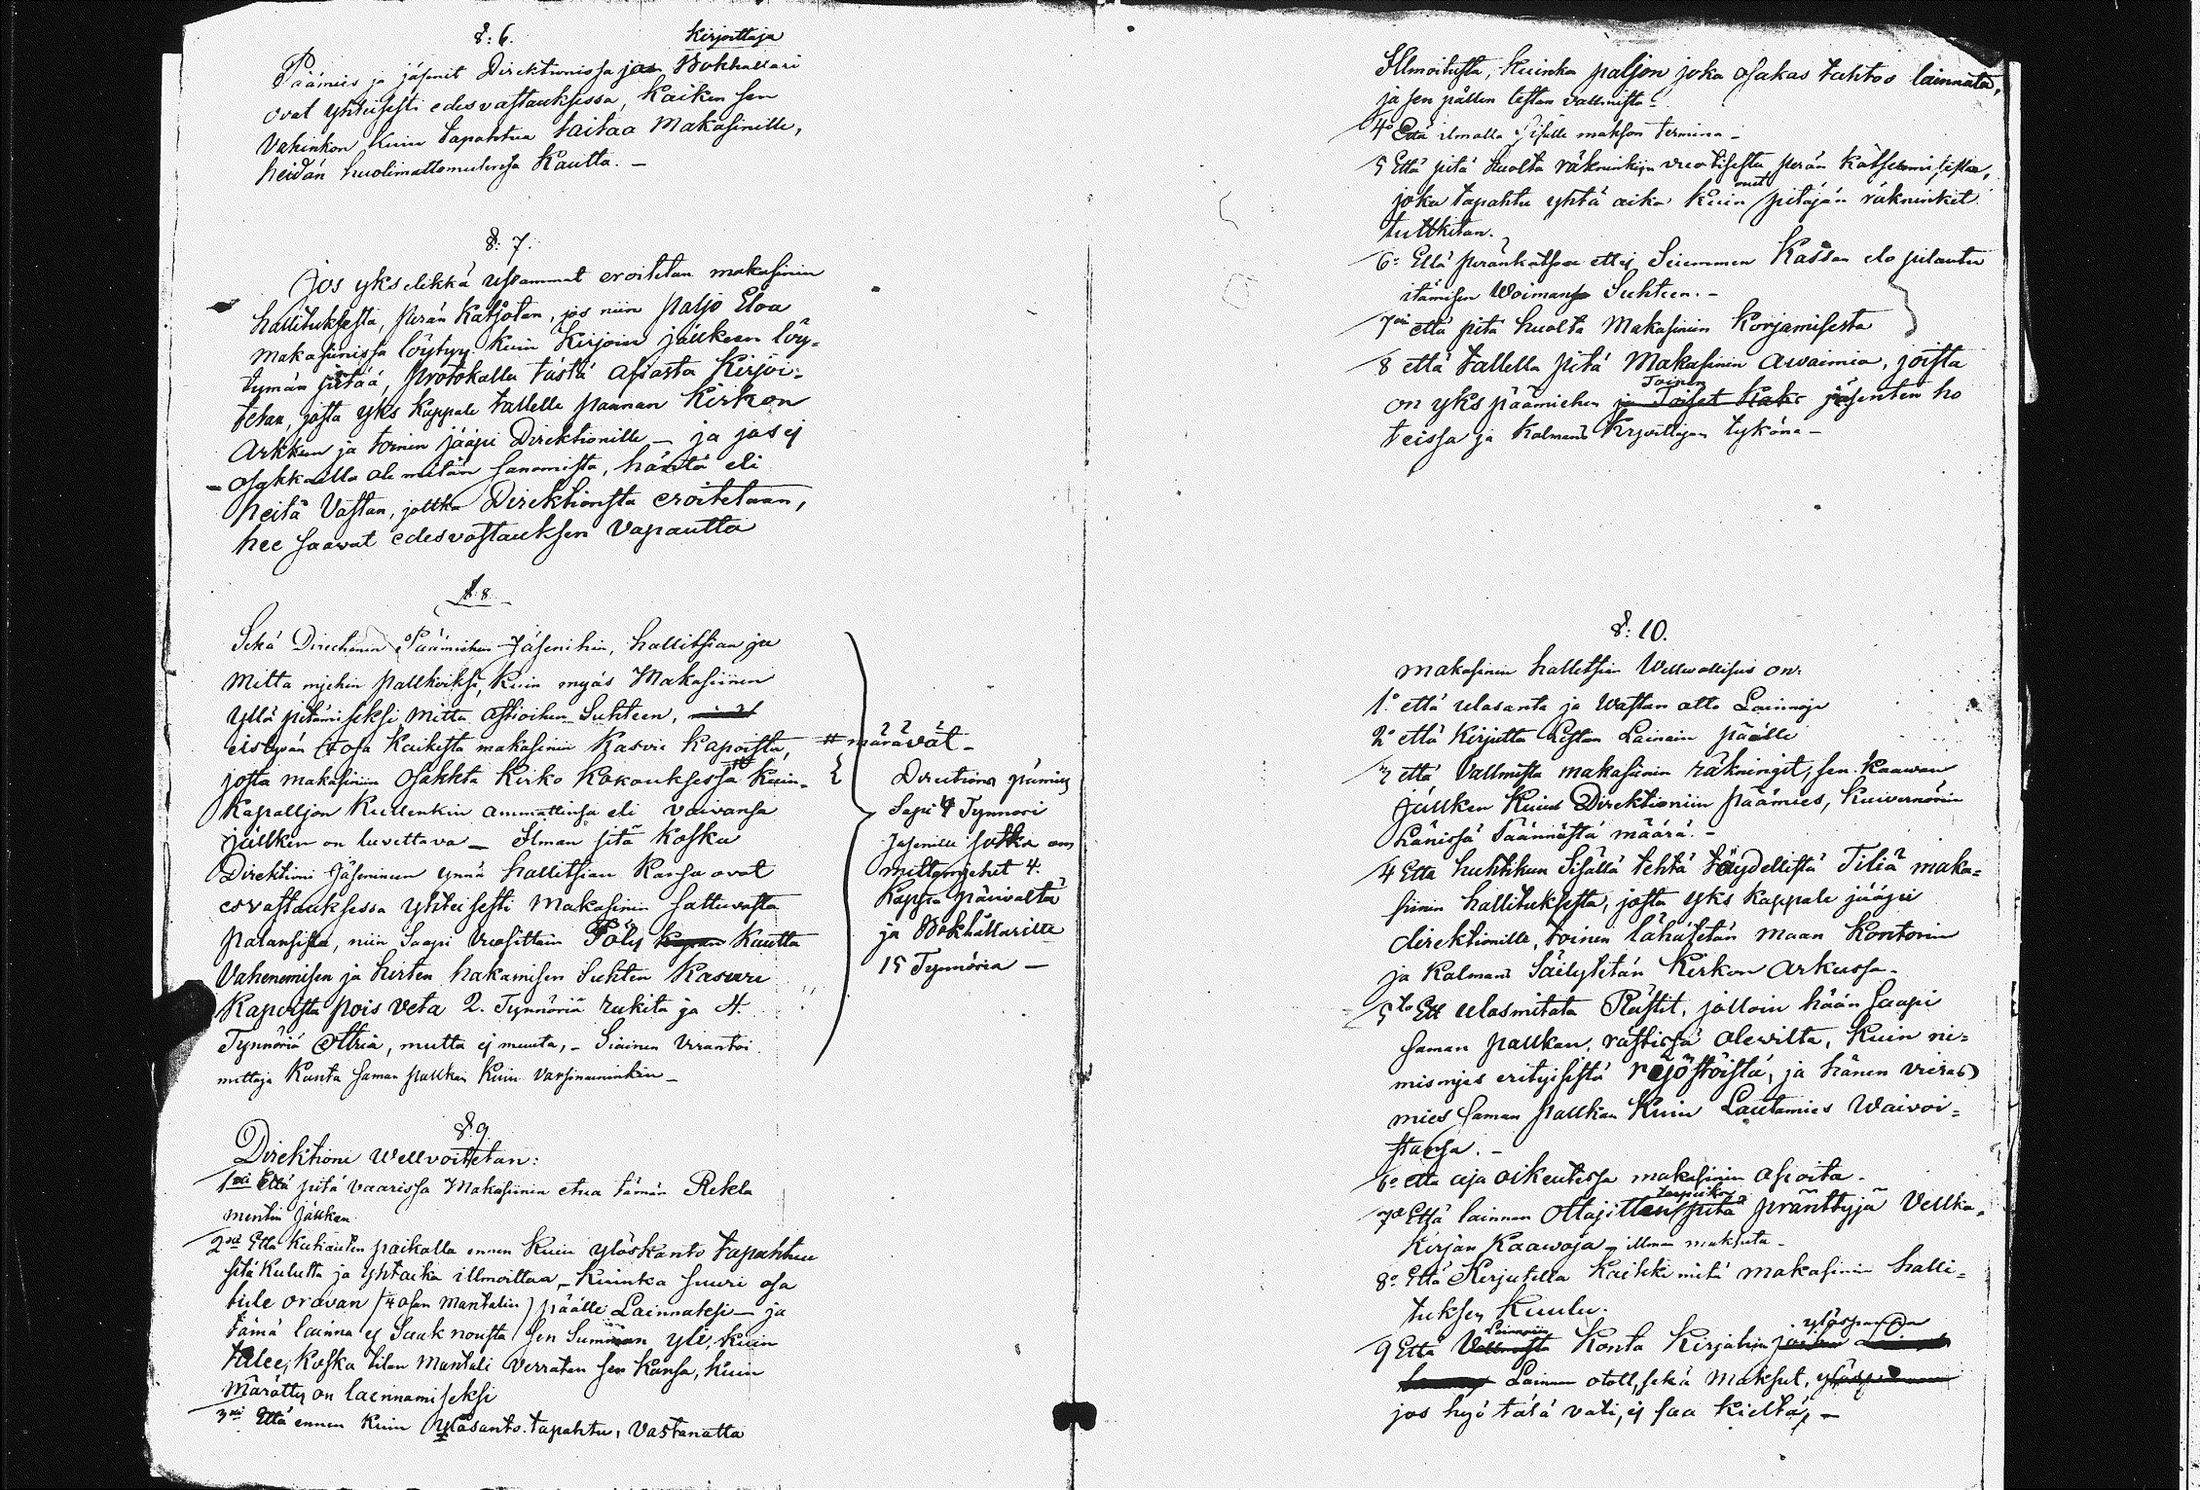 §: 6.
Kirjoittaja
Päämies ja jäsenit Direktionissa ja Bokhallari
ovat yhteisesti edesvastauksessa, kaiken sen
Vahinkon kuin tapahtua taitaa Makasinille,
heidän huolimattomutensa kautta. –
§: 7.
Jos yks elikkä usiammat eroitetan makasinin
hallituksesta, perän katsotan, jos niin paljo Eloa
makasinissa löytyy kuin kirjoin jälkeen löy-
tymän pitää, protokalla tästä asiasta kirjoi-
tetan, josta yks kappale tallelle pannan Kirkon
Arkkun ja toinen jääpi Direktionille – ja jos ej
osakkailla ole mitän sanomista, häntä eli
heitä Vastan, jottka Direktionista eroitetaan,
hee saavat edesvastauksen Vapautta
§. 8.
Sekä Direchonin Päämiehen Jäsenihin, hallitsian ja
Mitta mjehin palkkoiksi, kuin myös Makasiinin
Yllä pitämiseksi Mitta Astioihen Suhteen,
eistyvän osa kaikesta makasinin kasvu kapoista,
# määrävät –
josta makasinin osakkta kirko kokouksessa kuin-
kapalljon kullenkin ammattinsa eli vaivansa
jälken on luvettava – Ilman sitä koska
Direktioni Jäseninen ynnä hallitsian kansa ovat
esvastauksessa yhteisesti Makasinin sattuvasta
palansista, niin Saapi Vuosittain Pöly kautta
Vahenemisen ja hirten hakamisen Suhten kasvu
kapoista pois veta 2. Tynnöriä rukita ja 4.
Tynnöriä Ottria, mutta ej muuta, – Siainen Virantoi
mittaja kanta saman palkkan kuin varsinaminkin –
Directions päämies
Sapi 4 Tynnöri
Jäsenille jotka om
mittamjehet 4.
kappa päivältä
ja Bokhållarille
15 Tynnöriä –
§. 9.
Direktioni Wellvoitetan:
1xi Että pitä vaarissa Makasinin etua tämän Rekla
mentin Jälken.
2xi Että kutiauten paikalla ennen kuin ylöskanto tapahtuu
sitä kulutta ja yhtaika illmoittaa, – kuinka suuri osa
tule oravan / 4 osan Mantalin / päälle Lainnateksi – ja
tämä lainna ej Saak nousta sen Summan yli, kuin
tulee, koska tilan Mantali Verraten sen kansa, kuin
Märätty on lainnamiseksi
3xi Että ennen kuin Ylösanto tapahtu, Vastanatta
Illmoitusta, kuinka paljon joka Osakas tahtoo lainnata,
ja sen pällen listan vallmista –
4o Että ilmalla Sisälle makson termina –
5 Että pitä huolta räkninkiin vuotisesta perän kätselmisista,
joka tapahtu yhtä aika kuin muut pitäjän räkninkit
tuttkitan.
6o Että peränkatsoa ettej Siemmen Kassan elo pilantu
itämisen Woimansa Suhteen. –
7xi että pitä huolta Makasinin Korjamisesta
8 että tallella pitä Makasinin Awaimia, joista
Toinen
on yks päämiehen ja Toiset kaks jäsenten ho
teissa ja kolmas Krjoittajan tykönä –
§: 10.
Makasinin hallitsian Wellwallisus on.
1o että ulosanta ja Wastan otto Lainnoja
2o että kirjutta listan Lainain päälle
3 että Vallmista makasinin räkningit, sen kaawan
jälken kuin Direktioniin päämies, kuivernörin
Länissä Säännöstä määrä. –
4 Etta huhtikun Sisällä tehtä täydellistä Tiliä maka-
siinin hallituksesta, josta yks kappale jääpi
direktionille, toinen lähätetän maan Kontorin
ja kolmas Säilytetän Kirkon arkussa –
5to Ett ulosmitata Rästit, jolloin hään saapi
saman palkkan, rästissä olevilta, kuin ni-
mismjes erityisistä röjöstöistä, ja hänen vieras
mies saman palkkan kuin Lautamies Waivoi-
stansa. –
6o etta aja oikeutessa makasinin asioita –
7o Että lainnan ottajille pitä pränttyjä Vellka-
kirjan kaawoja – illman maksuta –
8o Että Kirjutella kaikki mitä makasinin halli-
tuksen kuulu.
9 Että Lainnoin Konta kirjahin ylöspanna
Lainan otoll, sekä maksut,
jos hyö tätä vati, ej saa kieltä, –